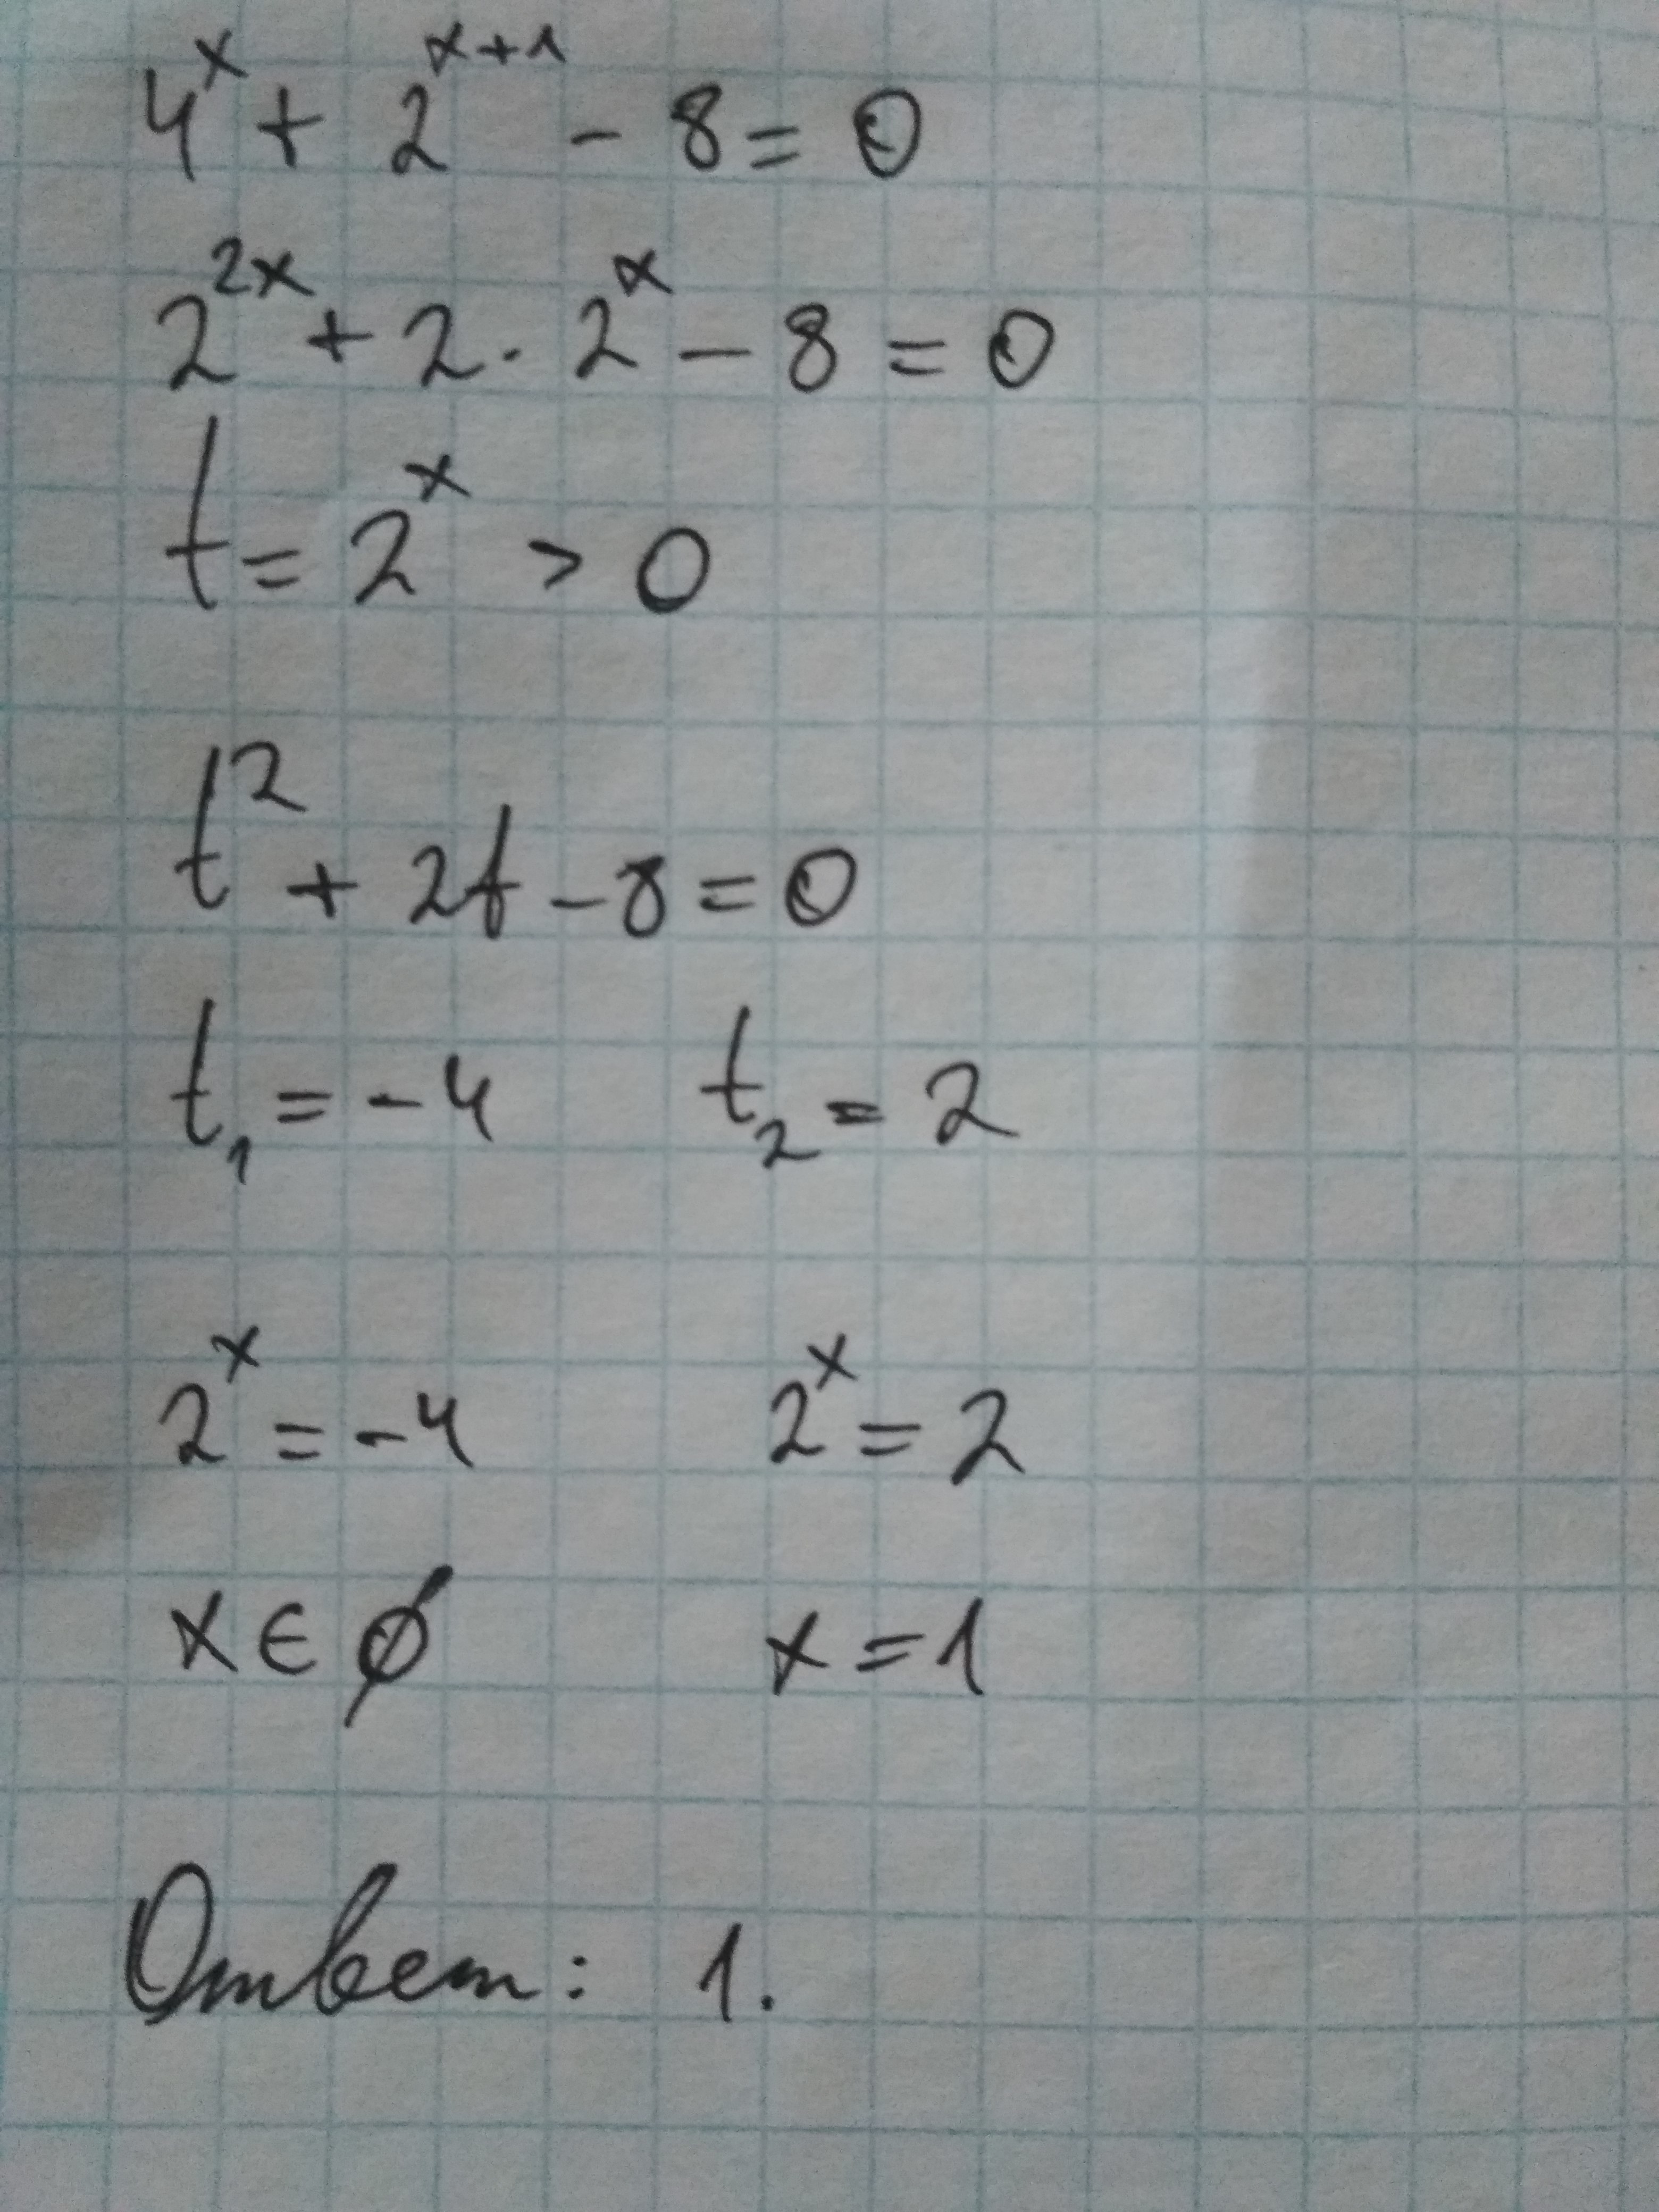 4^x + 2^{x+1} - 8 = 0
2^{2x} + 2 · 2^x - 8 = 0
t = 2^x > 0
t^2 + 2t - 8 = 0
t_1 = -4 t_2 = 2
2^x = -4 2^x = 2
x ∈ ∅ x = 1
Ответ: 1.